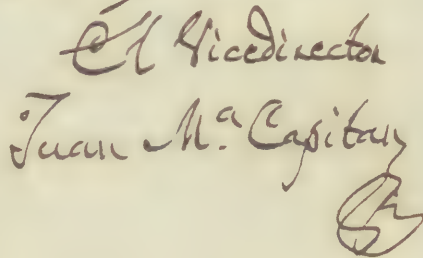 El Vicedirector
Juan M.ª Capitan